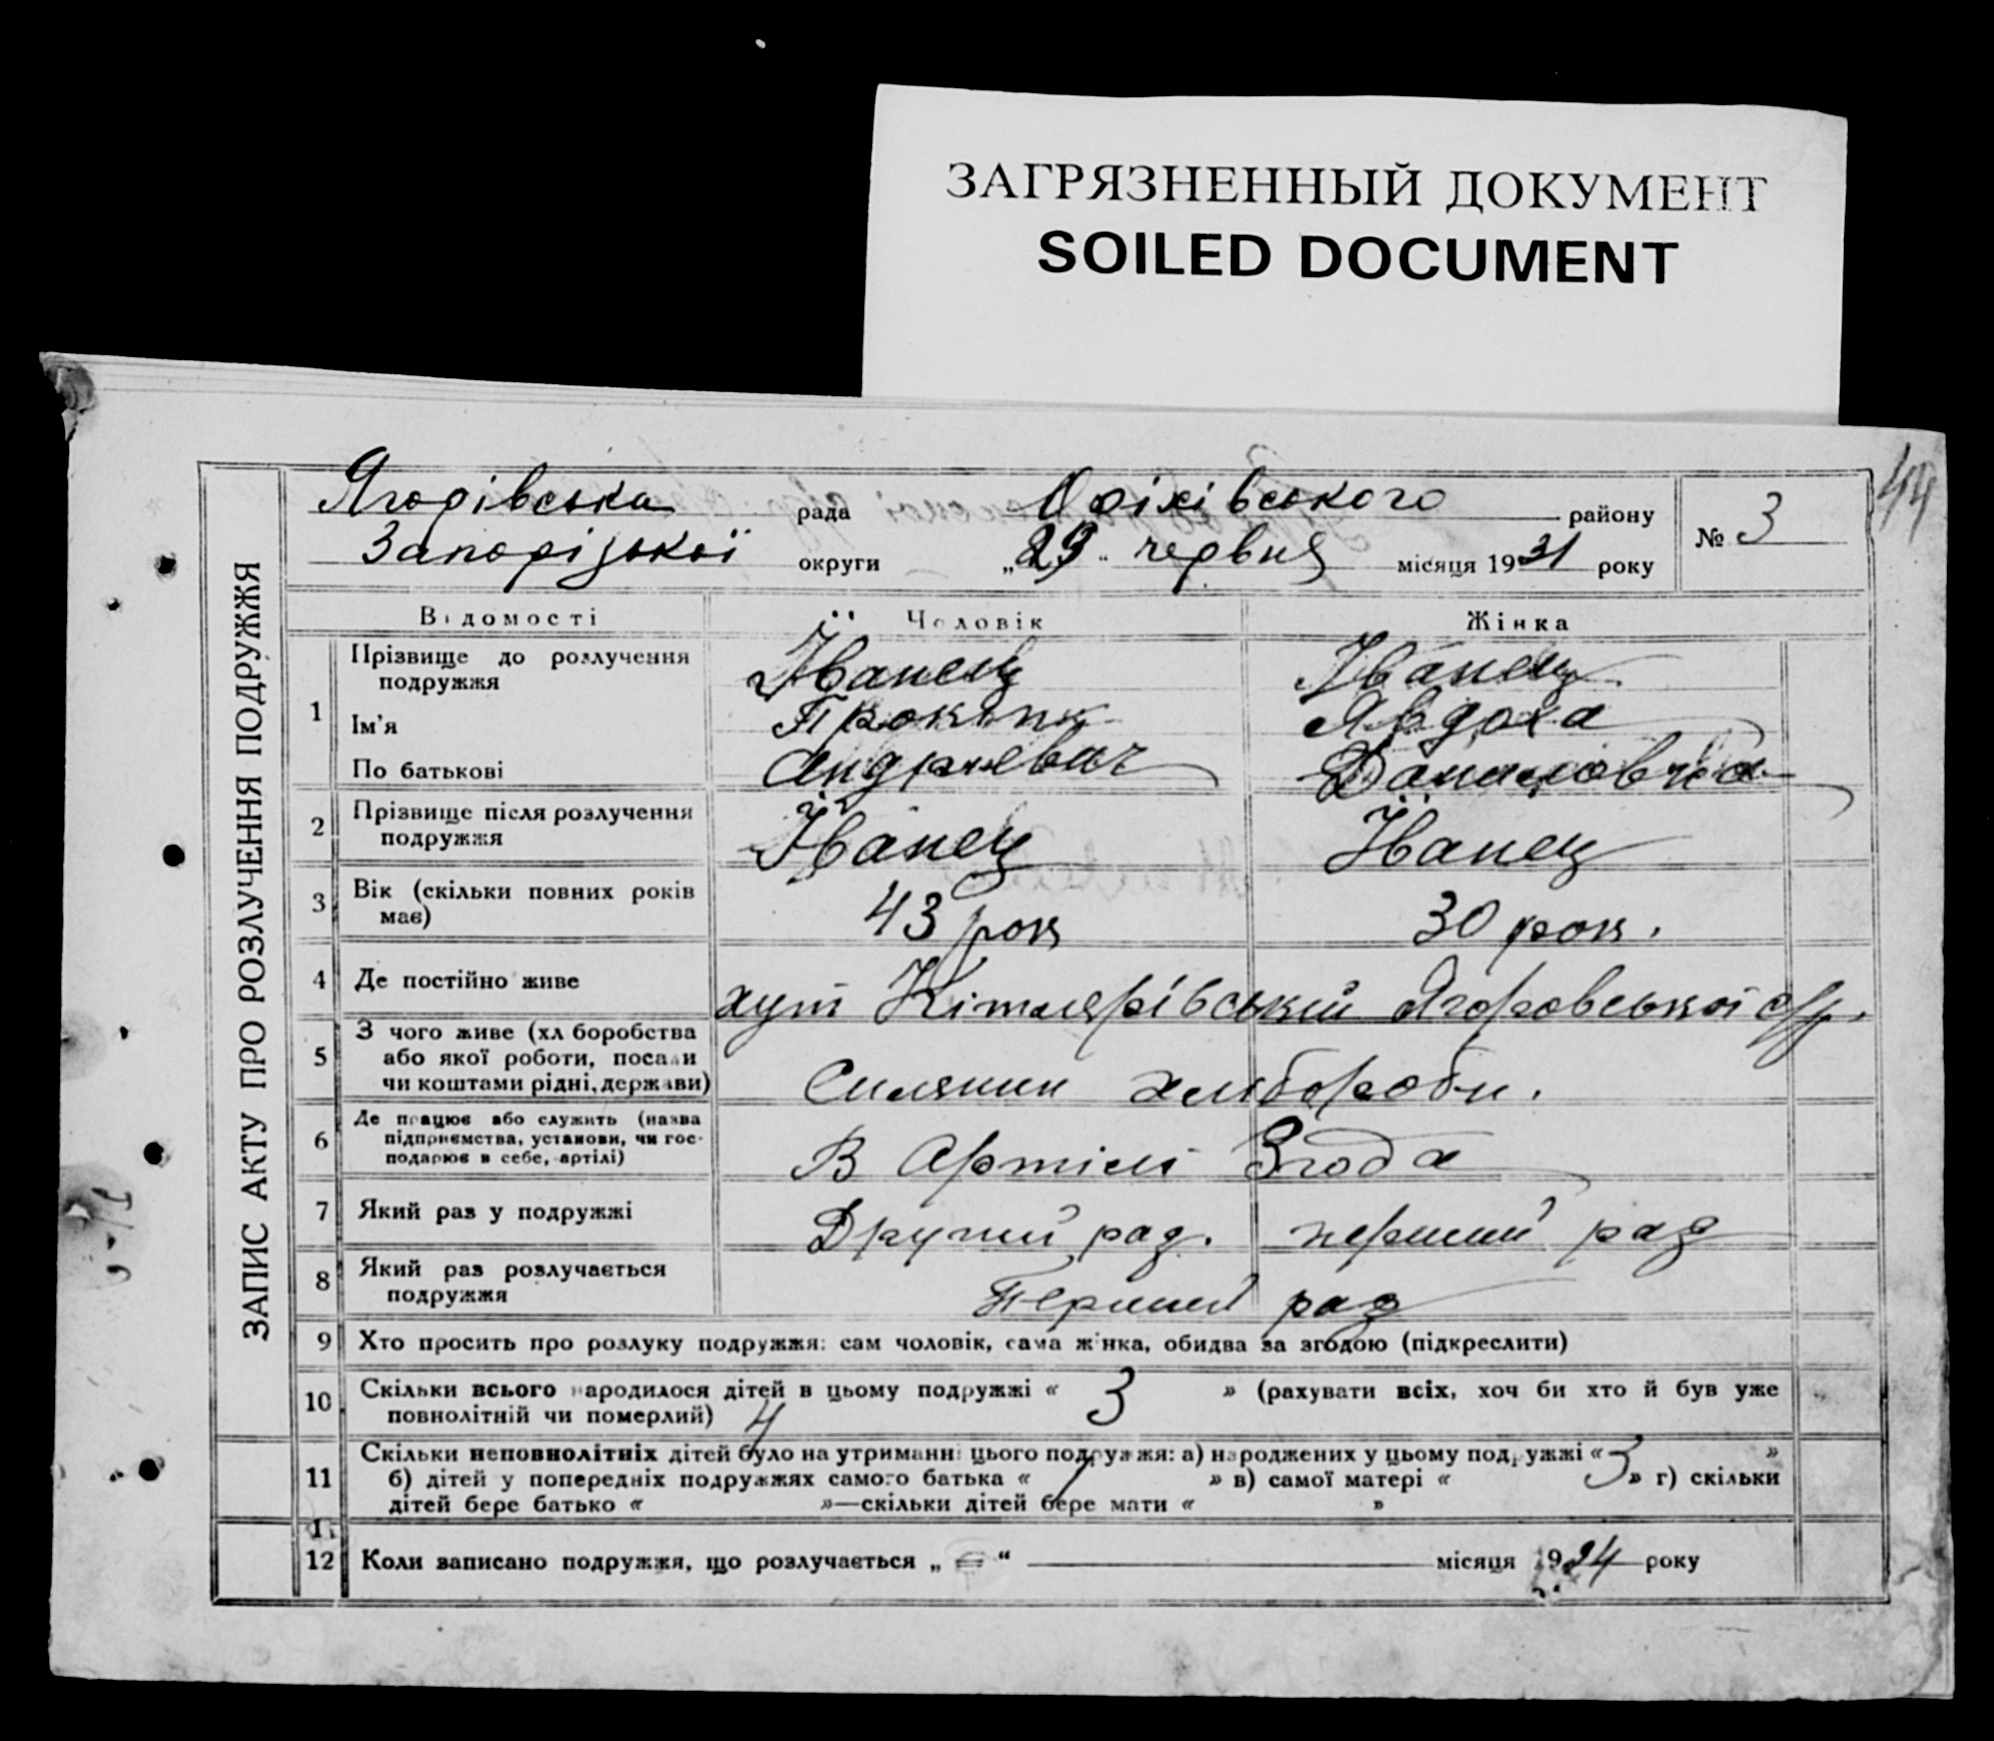 ЗАГРЯЗНЕННЫЙ ДОКУМЕНТ
SOILED DOCUMENT
44
ЗАПИС АКТУ ПРО РОЗЛУЧЕННЯ ПОДРУЖЖЯ
Ягорівська рада Оріхівського району
№ 3
Запорізької округи „29" червня місяця 1931 року
Відомості Чоловік Жінка
1 Прізвище до розлучення подружжя Їванец Їванец
Ім'я Прокіп Явдоха
По батькові Андриевич Даниловна
2 Прізвище після розлучення подружжя Їванец Їванец
3 Вік (скільки повних років має) 43 рок 30 рок.
4 Де постійно живе хут Кітлярівський Ягоровської с/р.
5 З чого живе (хліборобства або якої роботи, посади чи коштами рідні, держави) Силянин хлібороби.
6 Де працює або служить (назва підприємства, установи, чи господарює в себе, артілі) В Артілі Згода
7 Який раз у подружжі Другий раз. перший раз
8 Який раз розлучається подружжя Перший раз
9 Хто просить про розлуку подружжя: сам чоловік, сама жінка, обидва за згодою (підкреслити)
10 Скільки всього народилося дітей в цьому подружжі « 3 » (рахувати всіх, хоч би хто й був уже
повнолітній чи померлий) 4
11 Скільки неповнолітніх дітей було на утриманні цього подружжя: а) народжених у цьому подружжі « 3 »
б) дітей у попередніх подружжях самого батька « 1 » в) самої матері « » г) скільки
дітей бере батько « »—скільки дітей бере мати « »
12 Коли записано подружжя, що розлучається „ “ місяця 1924 року